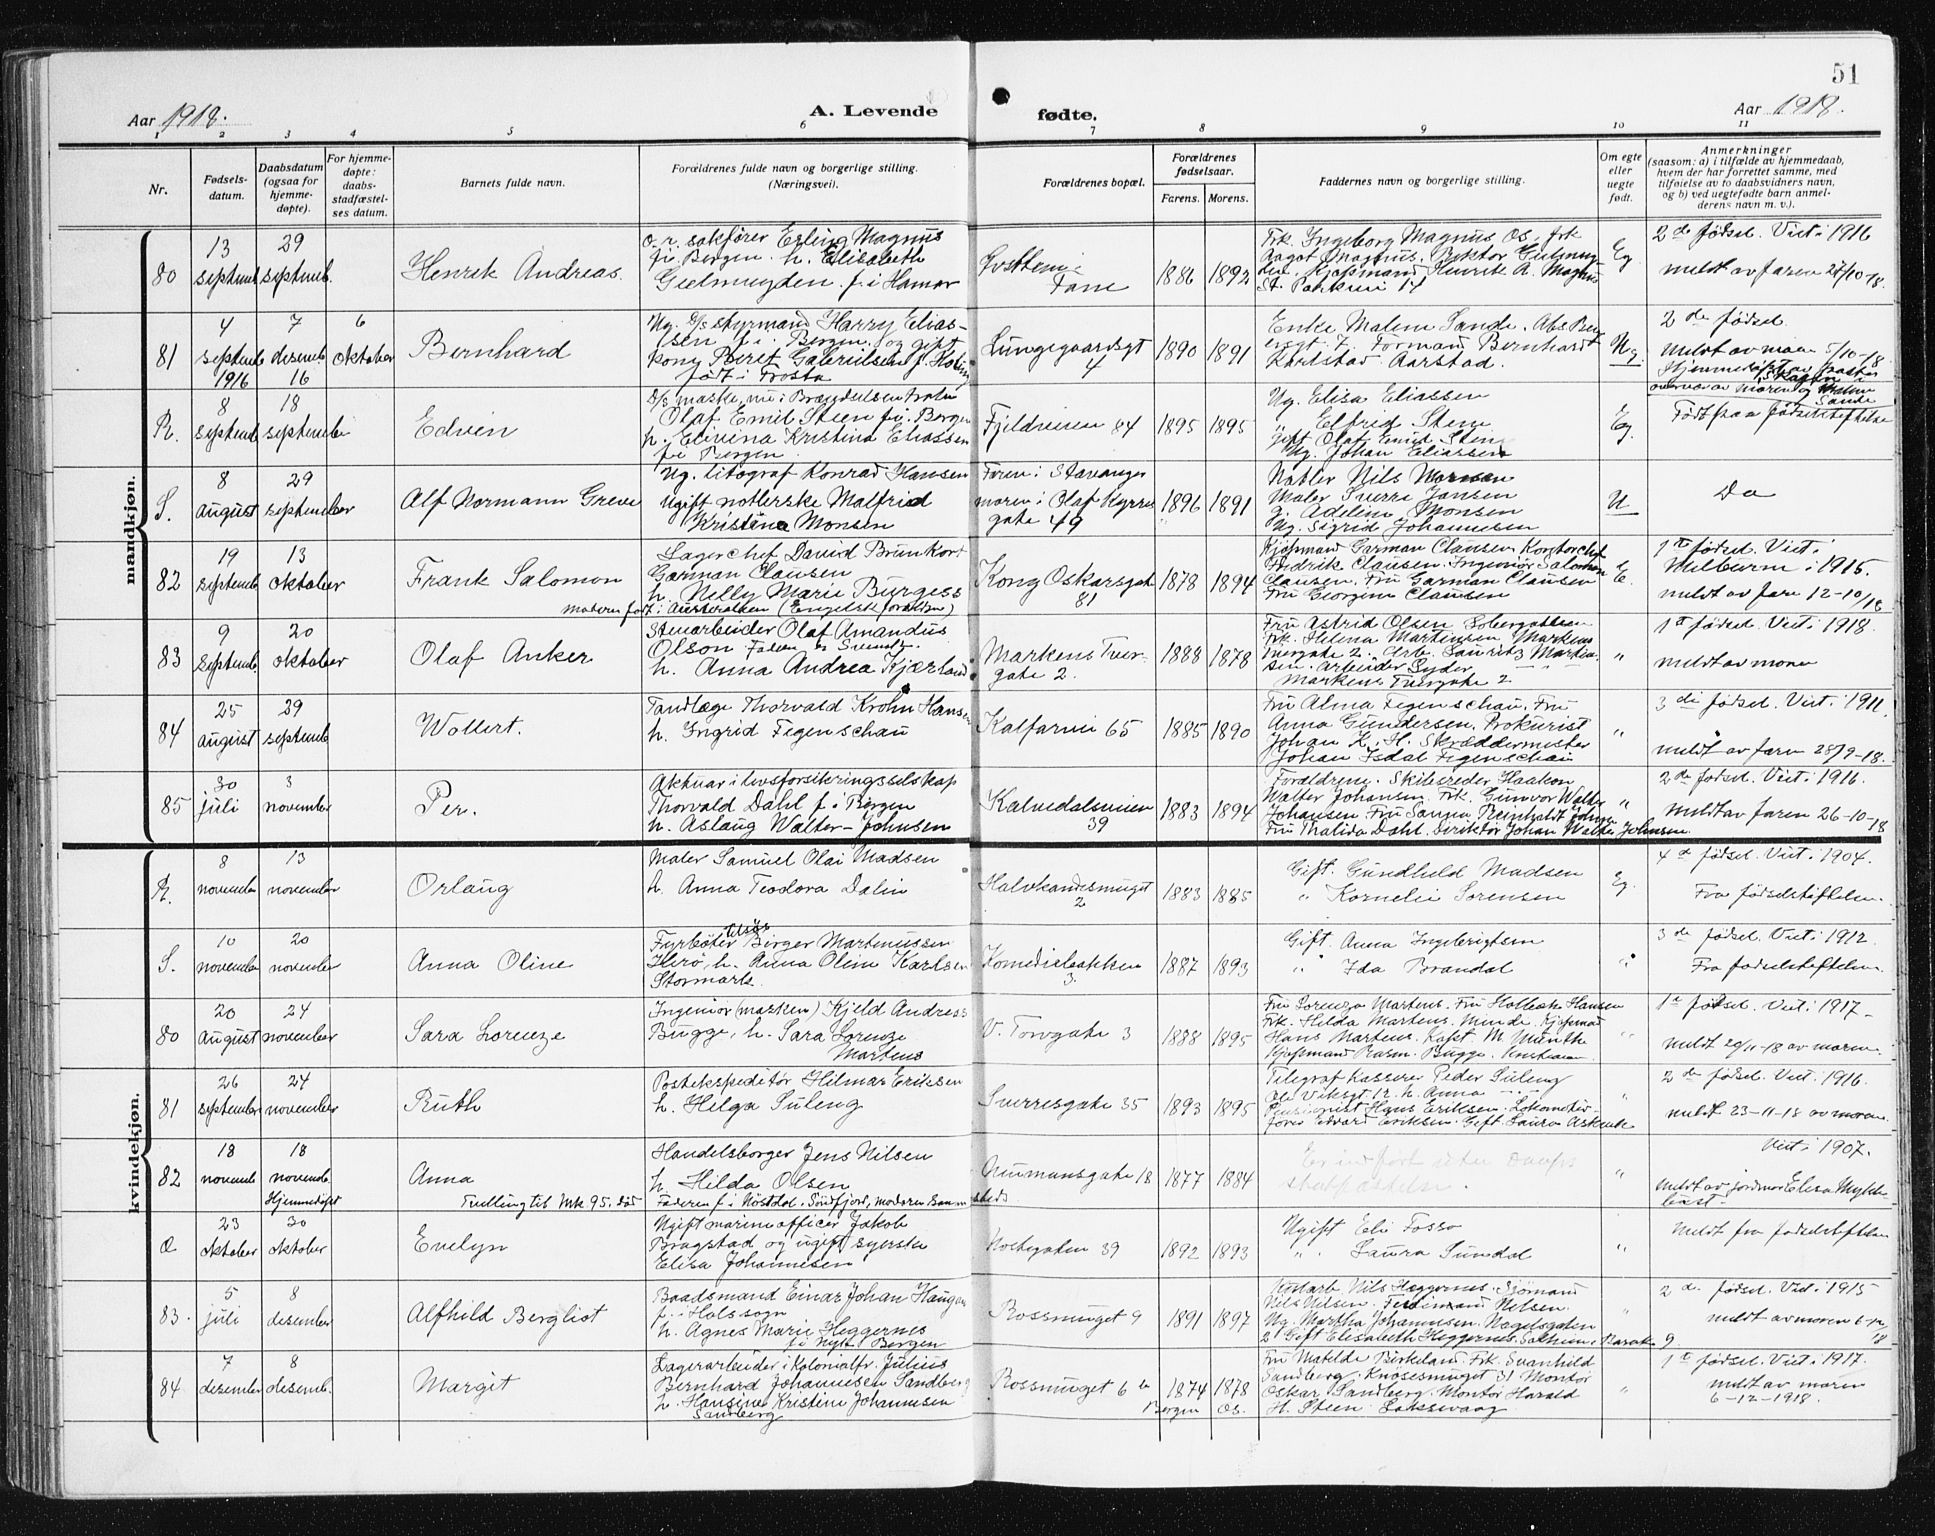 51
Aar 1918.
A. Levende
fødte.
Aar 1918.
1 2 3 4 5 6 7 8 9 10 11
Nr.
Fødsels-
datum.
Daabsdatum
(ogsaa for
hjemme-
døpte).
For hjemme-
døpte:
daabs-
stadfæstel-
ses datum.
Barnets fulde navn.
Forældrenes fulde navn og borgerlige stilling.
(Næringsvei).
Forældrenes bopæl.
Forældrenes
fødselsaar.
Farens. Morens.
Faddernes navn og borgerlige stilling.
Om egte
eller
uegte
født.
Anmerkninger
(saasom: a) i tilfælde av hjemmedaab,
hvem der har forrettet samme, med
tilføielse av to daabsvidners navn,
og b) ved uegtefødte barn anmel-
derens navn m. v.).
mandkjøn.
80
13
septemb.
29
septemb.
Henrik Andreas.
o. r. sakfører Erling Magnus
f. i Bergen. h. Elisabeth
Gielmuyden f. i Hamar
Fane
1886 1892
Frk. Ingeborg Magnus Os, frk
Aagot Magnus. Rektor Gielmuy-
den. Kjøpmand Henrik A. Magnus
St. Parkvei 14
Eg
2de fødsel. Viet i 1916
meldt av faren 27/10-18.
81
4
septemb
1916
7
desemb.
16
6
oktober
Bernhard
Ug. D/s styrmand Harry Elias-
sen f. i. Bergen og gift
kone Beret Gabrielsen f. Holm
født i Frosta
Lungegaardsgt
4
1890 1891
Enke Malene Sande. Abs Berg
ersgt 7. Formand Bernhardt
Karlstad Aarstad.
Ug.
2de fødsel.
Meldt av moren 5/10-18
Hjemmedøpt av pastor
overvær av moren og
Sande
R.
8
septemb
18
septembe
Edvin
Olaf Emil Steen f. i. Bergen
h. Elevina Kristina Eliassen
f. i Bergen
Fjeldveien 84
1895 1895
Ug. Elisa Eliassen
" Elfrid Steen
Gift Olaf Emil Steen
Ug. Johan Eliassen
Eg.
Født paa fødselsstiftelse
S.
8
august
29
september
Alf Normann Greve
Ug. litograf Konrad Hansen
Ugift notlerske Malfrid
Kristine Monsen
Faren i Stavanger
moren i Olaf Kyrres
gate 49
1896 1891
Nabler Nils Monsen
Maler Sverre Jansen
g. Adeline Monsen
Ug. Sigrid Johannesen
U
Do
82
19
septemb.
13
oktober
Frank Salomon
Lagerchef David Brunkort
Garman Clausen
h. Nelly Marie Burgess
Moderen født i Austerallien (Engelsk foreldre)
Kong Oskarsgat
81
1878 1894
Kjøpmand Garman Clausen, Kontorchef
Fredrik Clausen. Ingeniør Salomon
Clausen. Fru Garman Clausen
Fru Georgine Clausen
E.
1te fødsel. Viet i
Melburn i 1915.
meldt av fare 12-10/18
83
9
septemb.
20
oktober
Olaf Anker
Stenarbeider Olaf Amandus
Olson Faren er Svensk.
h. Anna Andrea Kjærland
Markens Tver-
gate 2.
1888 1878
Fru Astrid Olsen
Frk. Helena Martinsen Markens
Tvergate 2. Arb. Lauritz Martin-
sen. Arbeider
Markens Tvergate 2
"
1te fødsel. Viet i 1918.
meldt av moren
84
25
august
29
septemb
Wollert.
Tandlæge Thorvald Krohn Hansen
h. Ingrid Figenschau
Kalfarvei 65
1885 1890
Fru Alma Figenschau. Fru
Anna Gundersen. Prokurist
Johan K. H. Skræddermester
Johan Isdal Figenschau
"
3die fødsel. Viet i 1911.
meldt av faren 28/9-18.
85
30
juli
3
november
Per.
Aktuar i livsforsikringsselskap
Thorvald Dahl f. i Bergen
h. Aslaug Walter-Johnsen
Kalvedalsveien
39
1883 1894
Forældrene. Skibsreder Haakon
Walter Johansen. Frk. Gunvor Walter
Johansen Fru Reinholdt
Fru Matilda Dahl. Direktør Johan Walter Johnsen
"
2de fødsel. Viet i 1916.
Meldt av faren 26-10-18
kvindekjøn.
R.
8
november
13
november
Orlaug
Maler Samuel Olai Madsen
h. Anna Teodora Dalin
Halvkandesmuget
2
1883 1885
Gift. Gundhild Madsen
" Kornelie Sørensen
Eg.
4de fødsel. Viet i 1904.
Fra fødselsstiftelsen.
S.
10
november
20
november
Anna Oline
Fyrbøter Birger Martinussen
Herø, h. Anna Oline Karlsen
Stormark.
Komediebakken
3.
1887 1893
Gift. Anna Ingebrigtsen
" Ida Brandal
"
3de fødsel. Viet i 1912.
Fra fødselsstiftelsen.
80
20
august
24
november
Sara Lorenze
Ingeniør (maskin) Kjeld Andreas
Bugge, h. Sara Lorenze
Martens
V. Torvgate 3
1888 1895
Fru Lorenza Martens. Fru Holbek Hansen
Frk. Hilda Martens. Minde. Kjøpmad
Hans Martens. Kapt. M. Munthe
Kjøpmand Rasm. Bugge. Kristians
"
1te fødsel. Viet i 1917.
Meldt 20/11-18 av moren.
81
26
september
24
november
Ruth
Postekspeditør Hilmar Eriksen
h. Helga Suleng
Sverresgate 35
1893 1895
Telegraf kasserer Peder Suleng
Ole Viksgt 12. h. Anna
Pensionist Hans Eriksen. Lokomotiv-
fører Edvard Eriksen. Gift Laura
"
2de fødsel. Viet i 1916.
Meldt 23-11-18 av moren
82
18
novemb
18
novemb.
Hjemmedøpt
Anna
Tvilling til Mk 95. død
Handelsborger Jens Nilsen
h. Hilda Olsen
Faderen f. i Nøstdal, Søndfjord, moderen
Neumansgate 18
1877 1884
Er indført efter Daaps
"
Viet i 1907.
Meldt av jordmor Elisa Mykle-
bust.
O
23
oktober
30
oktober
Evelyn
Ugift marineofficer Jakob
Bragstad og ugift syerske
Elisa Johannesen
Nostegaten 39
1892 1893
Ugift Eli Fosso
" Laura Sundal
"
Meldt fra fødselsstiftelsen
83.
5
juli
8
desember
Alfhild Bergliot
Baadsmand Einar Johan Haugen
f. i Hols sogn
h. Agnes Marie Heggernes
f. i Nykr. Bergen
Rosesmuget 9
1891 1897
Nils Heggernes. Sjømand
Nils Nilsen. Ferdinand Nilsen.
Ug. Martha Johannesen. Nagelsgaten
21 Gift Elisabeth Heggernes. Solheim. Barak 9.
"
2de fødsel. Viet i 1915
meldt av moren 6-12/18
84
7
desember
8
desemb.
Margit
Lagerarbeider i Kolonialfr. Julius
Bernhard Johannesen Sandberg
h. Hansine Kristine Johannesen
Sandberg
Rosesmuget 6 b
1874 1878
Bergen Os.
Fru Matilde Birkeland. Frk. Svanhild
Sandberg. Knøsesmuget 31 Montør
Oskar Sandberg. Montør Harald
H. Steen Laksevaag
"
1te fødsel. Viet i 1917.
meldt av moren
6-12-1918.